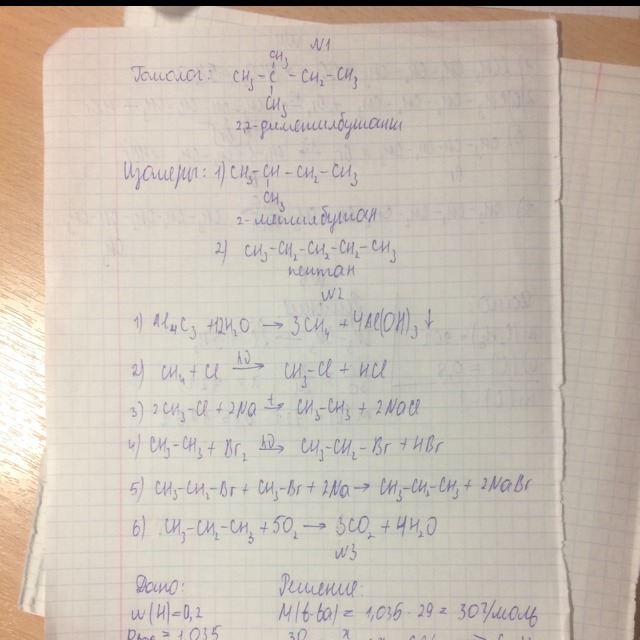 N1
CH₃
Гомолог: CH₃-C-CH₂-CH₃
CH₃
2,2-диметилбутан
Изомеры: 1) CH₃-CH-CH₂-CH₃
CH₃
2-метилбутан
2) CH₃-CH₂-CH₂-CH₂-CH₃
пентан
N2
1) Al₄C₃ + 12H₂O → 3CH₄ + 4Al(OH)₃↓
2) CH₄ + Cl → CH₃-Cl + HCl
3) 2CH₃-Cl + 2Na →ᵗ CH₃-CH₃ + 2NaCl
4) CH₃-CH₃ + Br₂ → CH₃-CH₂-Br + HBr
5) CH₃-CH₂-Br + CH₃-Br + 2Na → CH₃-CH₂-CH₃ + 2NaBr
6) CH₃-CH₂-CH₃ + 5O₂ → 3CO₂ + 4H₂O
N3
Дано: Решение:
w(H)=0,2 M(в-ва) = 1,035 · 29 = 30 г/моль
= 1,035 30